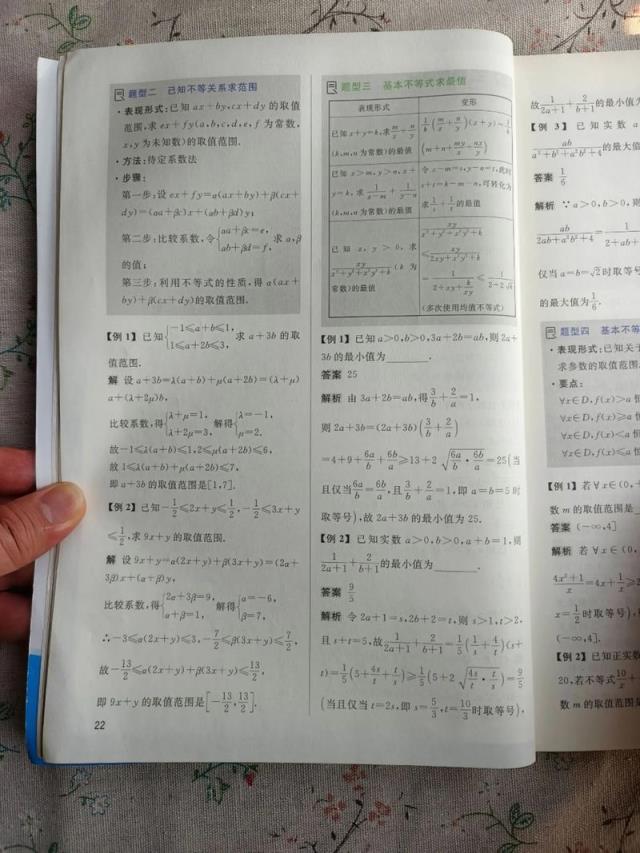 题型二 已知不等关系求范围
·表现形式:已知ax+by,cx+dy的取值
范围,求ex+fy(a,b,c,d,e,f为常数,
x,y为未知数)的取值范围.
·方法:待定系数法
·步骤:
第一步:设ex+fy=α(ax+by)+β(cx+
dy)=(aα+βc)x+(αb+βd)y;
第二步:比较系数,令{aα+βc=e, αb+βd=f, 求α,β
的值;
第三步:利用不等式的性质,得α(ax+
by)+β(cx+dy)的取值范围.
【例1】已知{-1≤a+b≤1, 1≤a+2b≤3, 求a+3b的取
值范围.
解 设a+3b=λ(a+b)+μ(a+2b)=(λ+μ)
a+(λ+2μ)b,
比较系数,得{λ+μ=1, λ+2μ=3, 解得{λ=-1, μ=2.
故-1≤λ(a+b)≤1,2≤μ(a+2b)≤6,
故1≤λ(a+b)+μ(a+2b)≤7,
即a+3b的取值范围是[1,7].
【例2】已知-1/2≤2x+y≤1/2,-1/2≤3x+y
≤1/2,求9x+y的取值范围.
解 设9x+y=α(2x+y)+β(3x+y)=(2α+
3β)x+(α+β)y,
比较系数,得{2α+3β=9, α+β=1, 解得{α=-6, β=7,
∴-3≤α(2x+y)≤3,-7/2≤β(3x+y)≤7/2,
故-13/2≤α(2x+y)+β(3x+y)≤13/2,
即9x+y的取值范围是[-13/2,13/2].
22
题型三 基本不等式求最值
表现形式 变形
已知x+y=k,求m/x+n/y
(k,m,n为常数)的最值
1/k(m/x+n/y)(x+y)=1/k
(m+n+my/x+nx/y)
已知x>m,y>n,x+
y=k,求1/(x-m)+1/(y-n)
(k,m,n为常数)的最值
令x-m=s,y-n=t,此时
s+t=k-m-n,可转化为
求1/s+1/t的最值
已知x,y>0,求
xy/(x²+y²+x²y²+k)(k为
常数)的最值
xy/(x²+y²+x²y²+k)
≤xy/(2xy+x²y²+k)
=1/(2+xy+k/xy)≤1/(2+2√k)
(多次使用均值不等式)
【例1】已知a>0,b>0,3a+2b=ab,则2a+
3b的最小值为______.
答案 25
解析 由3a+2b=ab,得3/b+2/a=1,
则2a+3b=(2a+3b)(3/b+2/a)
=4+9+6a/b+6b/a≥13+2√(6a/b·6b/a)=25(当
且仅当6a/b=6b/a,且3/b+2/a=1,即a=b=5时
取等号),故2a+3b的最小值为25.
【例2】已知实数a>0,b>0,a+b=1,则
1/(2a+1)+2/(b+1)的最小值为______.
答案 9/5
解析 令2a+1=s,2b+2=t,则s>1,t>2,
且s+t=5,故1/(2a+1)+2/(b+1)=1/5(1/s+4/t)(s+
t)=1/5(5+4s/t+t/s)≥1/5(5+2√(4s/t·t/s))=9/5
(当且仅当t=2s,即s=5/3,t=10/3时取等号),
故1/(2a+1)+2/(b+1)的最小值为
【例3】已知实数a
ab/(a²+b²+a²b²+4)的最大值
答案 1/6
解析 ∵a>0,b>0,则
ab/(2ab+a²b²+4)=1/(2+ab+
仅当a=b=√2时取等号
的最大值为1/6.
题型四 基本不等
·表现形式:已知关于
求参数的取值范围.
·要点:
∀x∈D,f(x)>a恒
∀x∈D,f(x)≥a恒
∀x∈D,f(x)<a恒
∀x∈D,f(x)≤a恒
【例1】若∀x∈(0,+
数m的取值范围是
答案 (-∞,4]
解析 若∀x∈(0,
(4x²+1)/x=4x+1/x≥2
x=1/2时取等号),
(-∞,4].
【例2】已知正实数
20,若不等式10/x+
数m的取值范围是